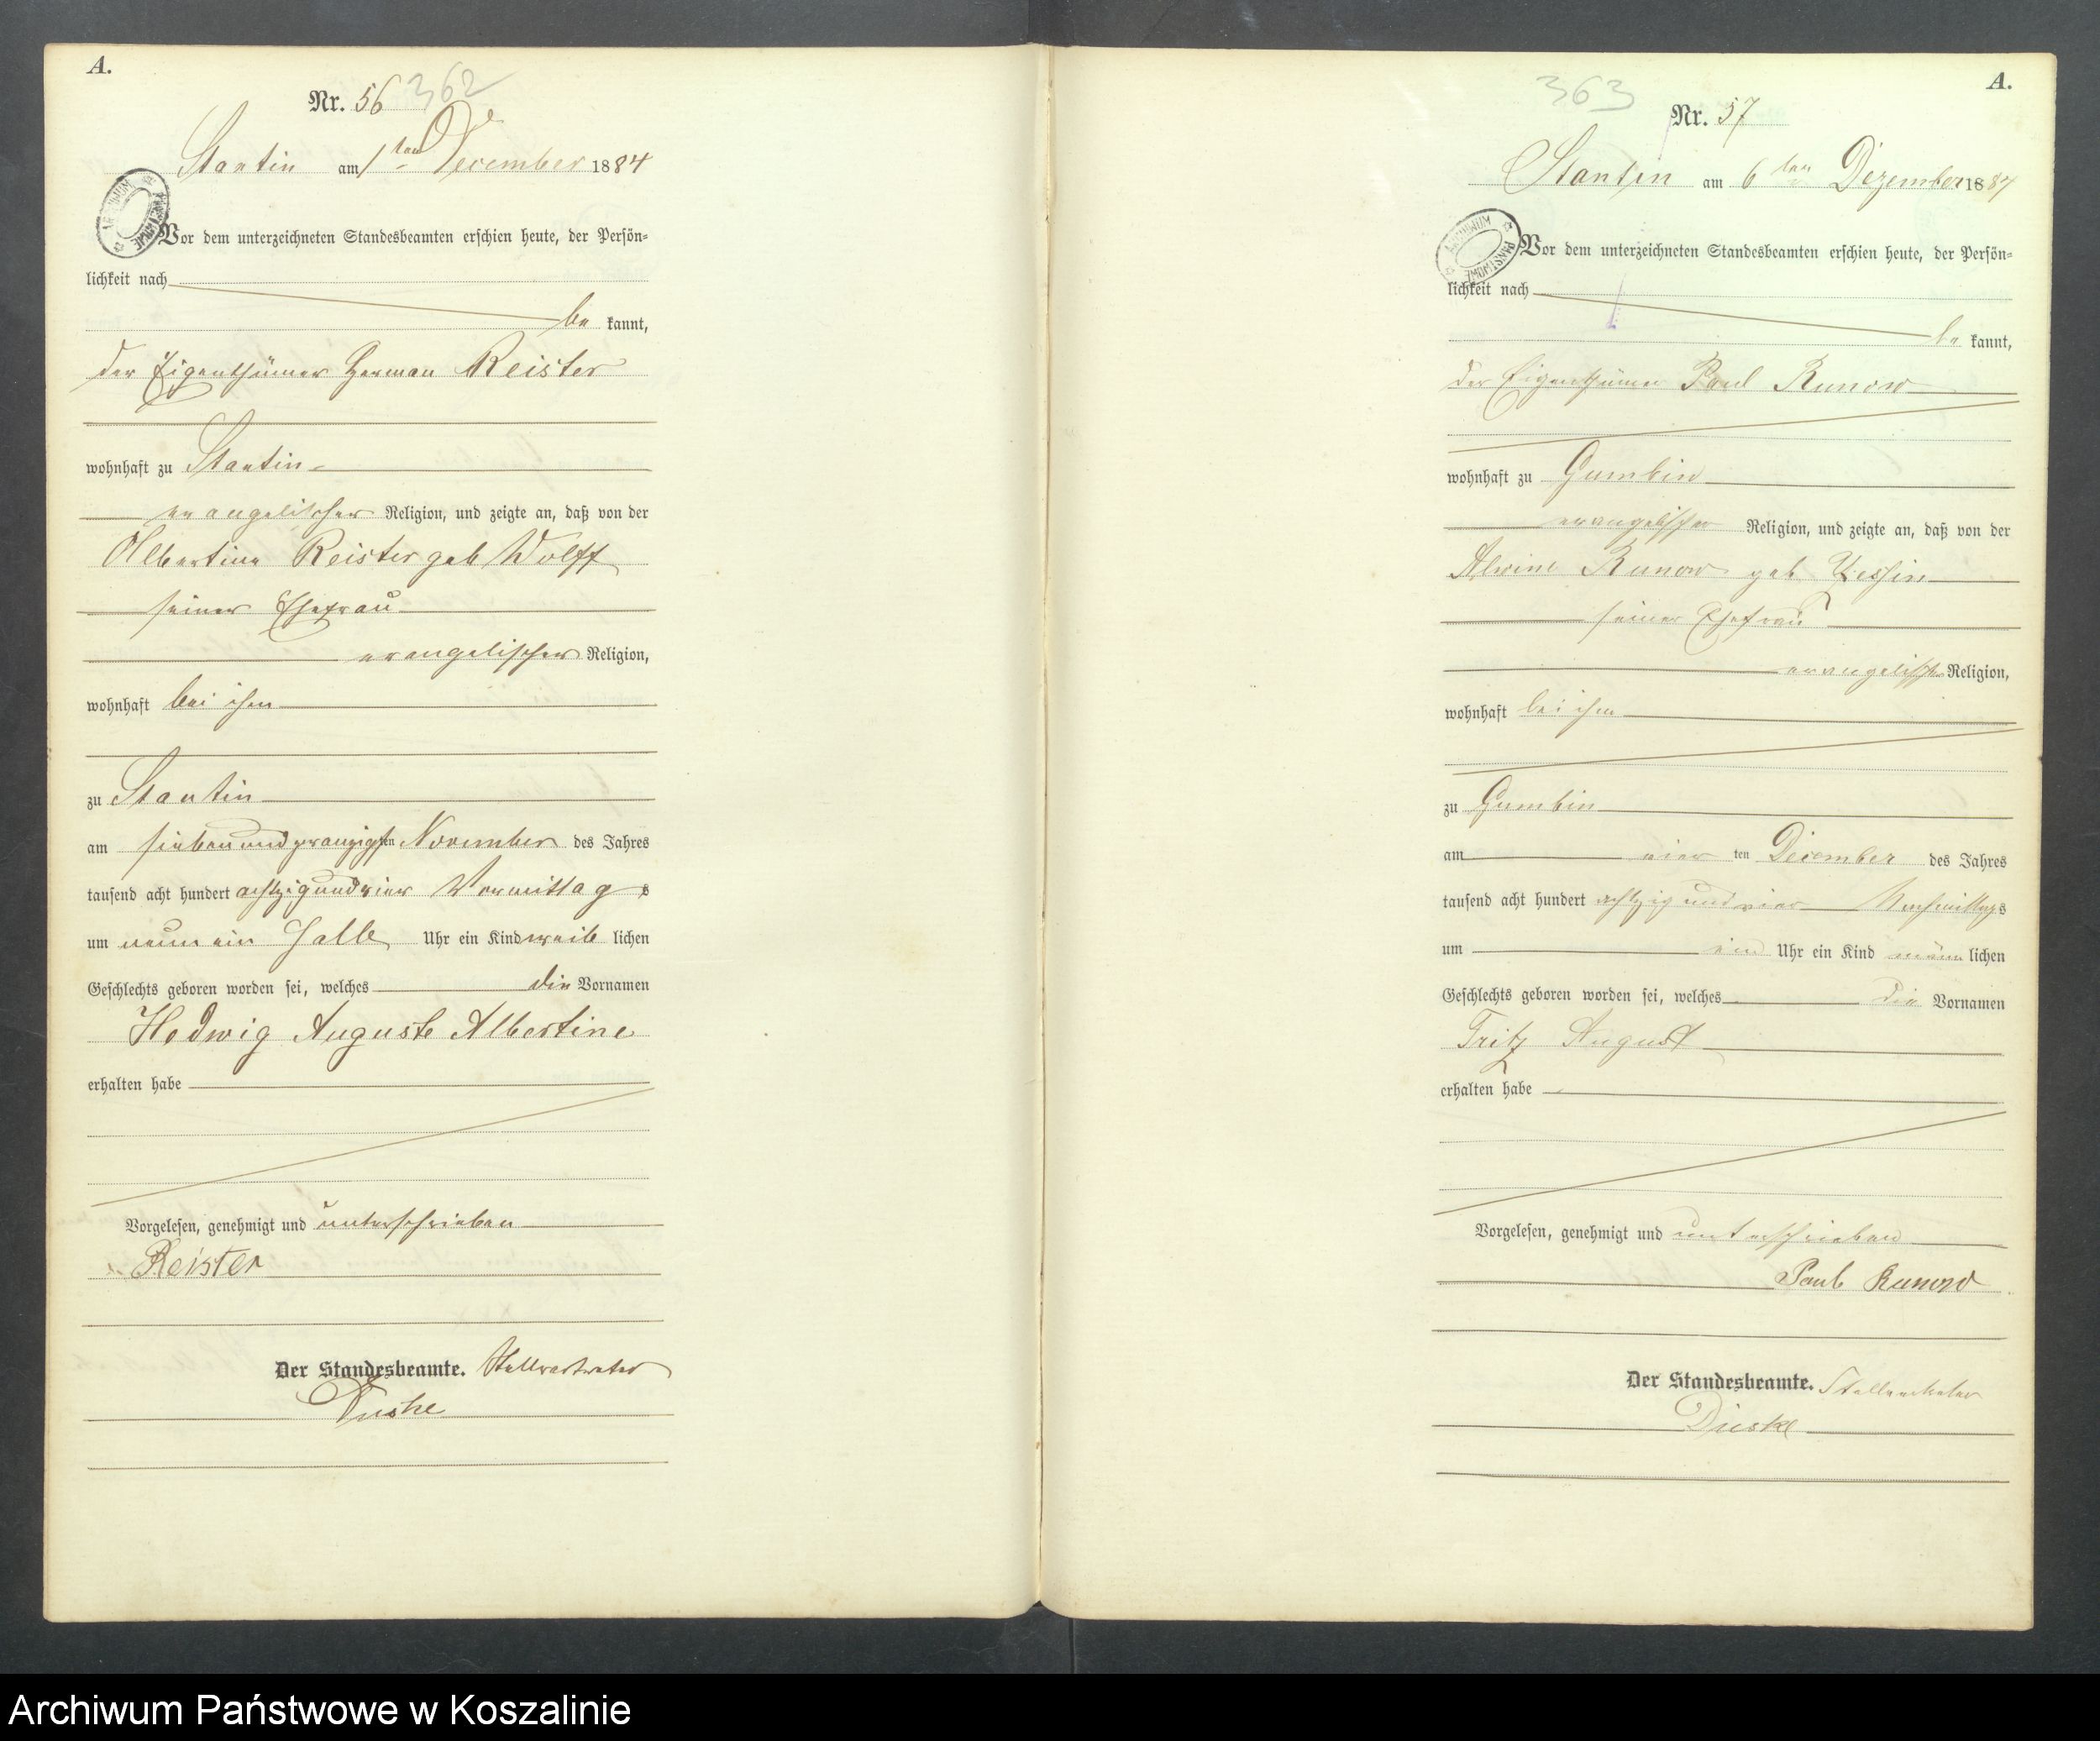 A.
Nr. 56 362
Stantin am 1ten December 1884
ARCHIWUM PAŃSTWOWE
Vor dem unterzeichneten Standesbeamten erschien heute, der Persön=
lichkeit nach
be kannt,
der Eigenthümer Herman Reister
wohnhaft zu Stantin
evangelischer Religion, und zeigte an, daß von der
Albertine Reister geb Wolff
seiner Ehefrau
evangelischer Religion,
wohnhaft bei ihm
zu Stantin
am siebenundzwanzigsten November des Jahres
tausend acht hundert achtzigundvier Vormittag s
um neun ein halb Uhr ein Kind weib lichen
Geschlechts geboren worden sei, welches die Vornamen
Hedwig Auguste Albertine
erhalten habe
Vorgelesen, genehmigt und unterschrieben
Reister
Der Standesbeamte. Stellvertreter
A.
363
Nr. 57
Stantin am 6ten Dezember 1884
ARCHIWUM PAŃSTWOWE
Vor dem unterzeichneten Standesbeamten erschien heute, der Persön=
lichkeit nach
be kannt,
der Eigenthümer Paul Kunow
wohnhaft zu Gumbin
evangelischer Religion, und zeigte an, daß von der
Alwine Kunow geb
seiner Ehefrau
evangelischer Religion,
wohnhaft bei ihm
zu Gumbin
am vier ten December des Jahres
tausend acht hundert achtzig und vier Nachmittags
um ein Uhr ein Kind männ lichen
Geschlechts geboren worden sei, welches die Vornamen
Fritz August
erhalten habe
Vorgelesen, genehmigt und unterschrieben
Paul Kunow
Der Standesbeamte. Stellvertreter
Dieske
Archiwum Państwowe w Koszalinie